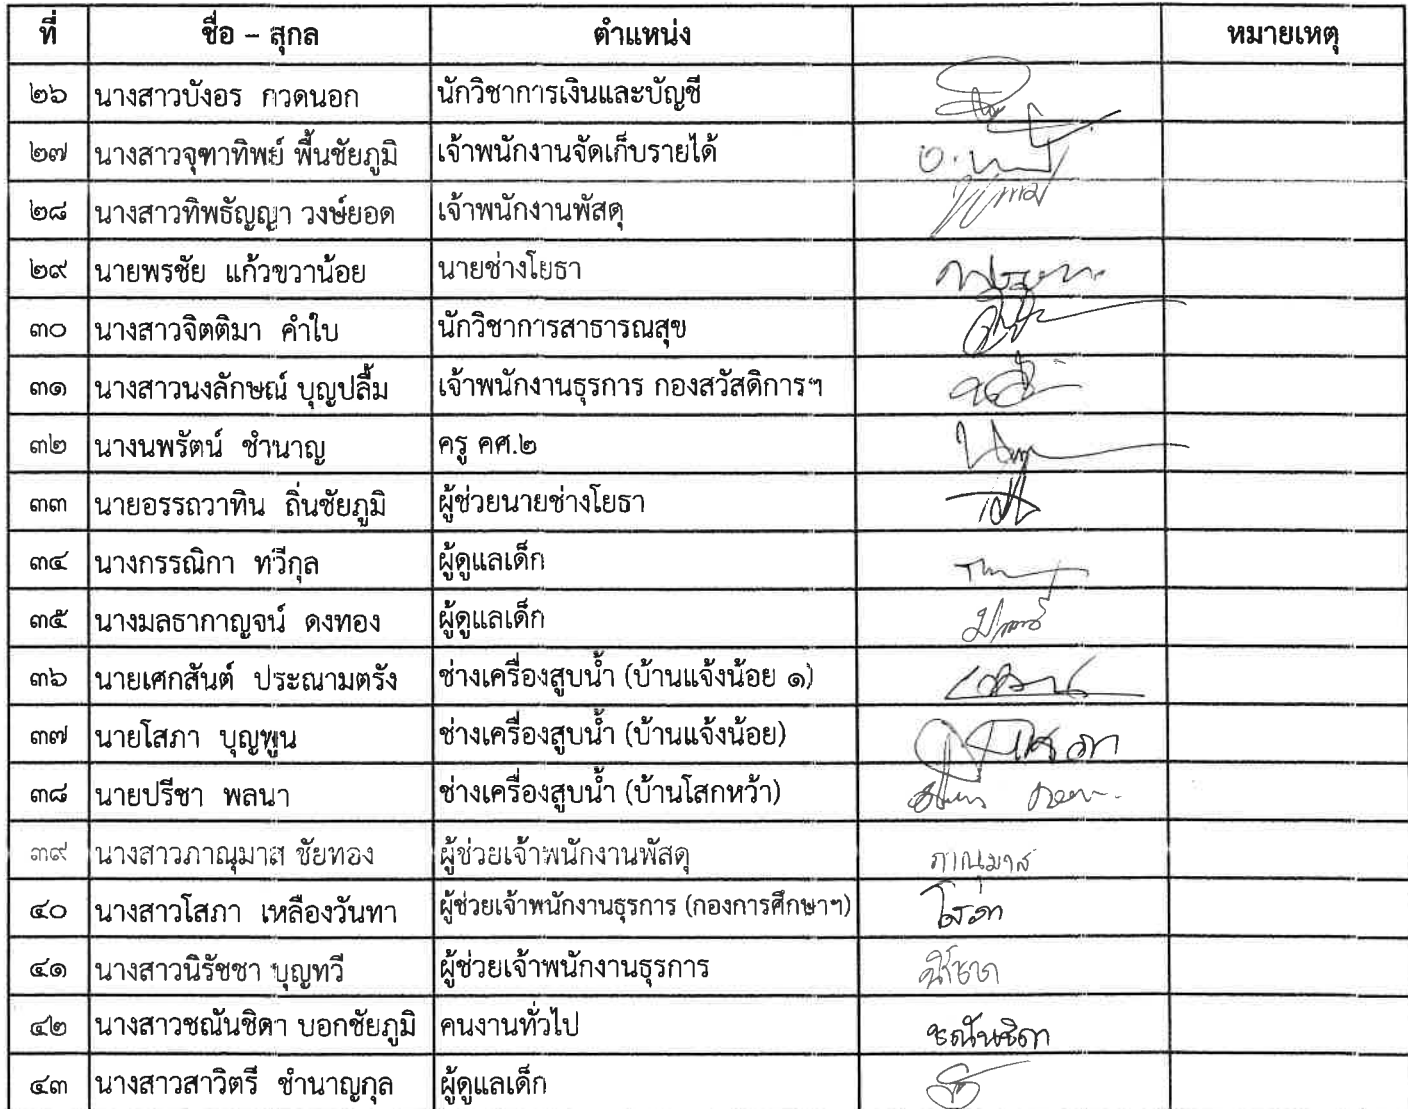 ที่ ชื่อ – สุกล ตำแหน่ง หมายเหตุ
๒๖ นางสาวบังอร กวดนอก นักวิชาการเงินและบัญชี
๒๗ นางสาวจุฑาทิพย์ พื้นชัยภูมิ เจ้าพนักงานจัดเก็บรายได้
๒๘ นางสาวทิพธัญญา วงษ์ยอด เจ้าพนักงานพัสดุ
๒๙ นายพรชัย แก้วขวาน้อย นายช่างโยธา
๓๐ นางสาวจิตติมา คำใบ นักวิชาการสาธารณสุข
๓๑ นางสาวนงลักษณ์ บุญปลื้ม เจ้าพนักงานธุรการ กองสวัสดิการฯ
๓๒ นางนพรัตน์ ชำนาญ ครู คศ.๒
๓๓ นายอรรถวาทิน ถิ่นชัยภูมิ ผู้ช่วยนายช่างโยธา
๓๔ นางกรรณิกา ทวีกุล ผู้ดูแลเด็ก
๓๕ นางมลธากาญจน์ ดงทอง ผู้ดูแลเด็ก
๓๖ นายเศกสันต์ ประณามตรัง ช่างเครื่องสูบน้ำ (บ้านแจ้งน้อย ๑)
๓๗ นายโสภา บุญพูน ช่างเครื่องสูบน้ำ (บ้านแจ้งน้อย)
๓๘ นายปรีชา พลนา ช่างเครื่องสูบน้ำ (บ้านโสกหว้า)
๓๙ นางสาวภาณุมาส ชัยทอง ผู้ช่วยเจ้าพนักงานพัสดุ ภาณุมาส
๔๐ นางสาวโสภา เหลืองวันทา ผู้ช่วยเจ้าพนักงานธุรการ (กองการศึกษาฯ) โสภา
๔๑ นางสาวนิรัชชา บุญทวี ผู้ช่วยเจ้าพนักงานธุรการ
๔๒ นางสาวชณันชิดา บอกชัยภูมิ คนงานทั่วไป ชณันชิดา
๔๓ นางสาวสาวิตรี ชำนาญกุล ผู้ดูแลเด็ก